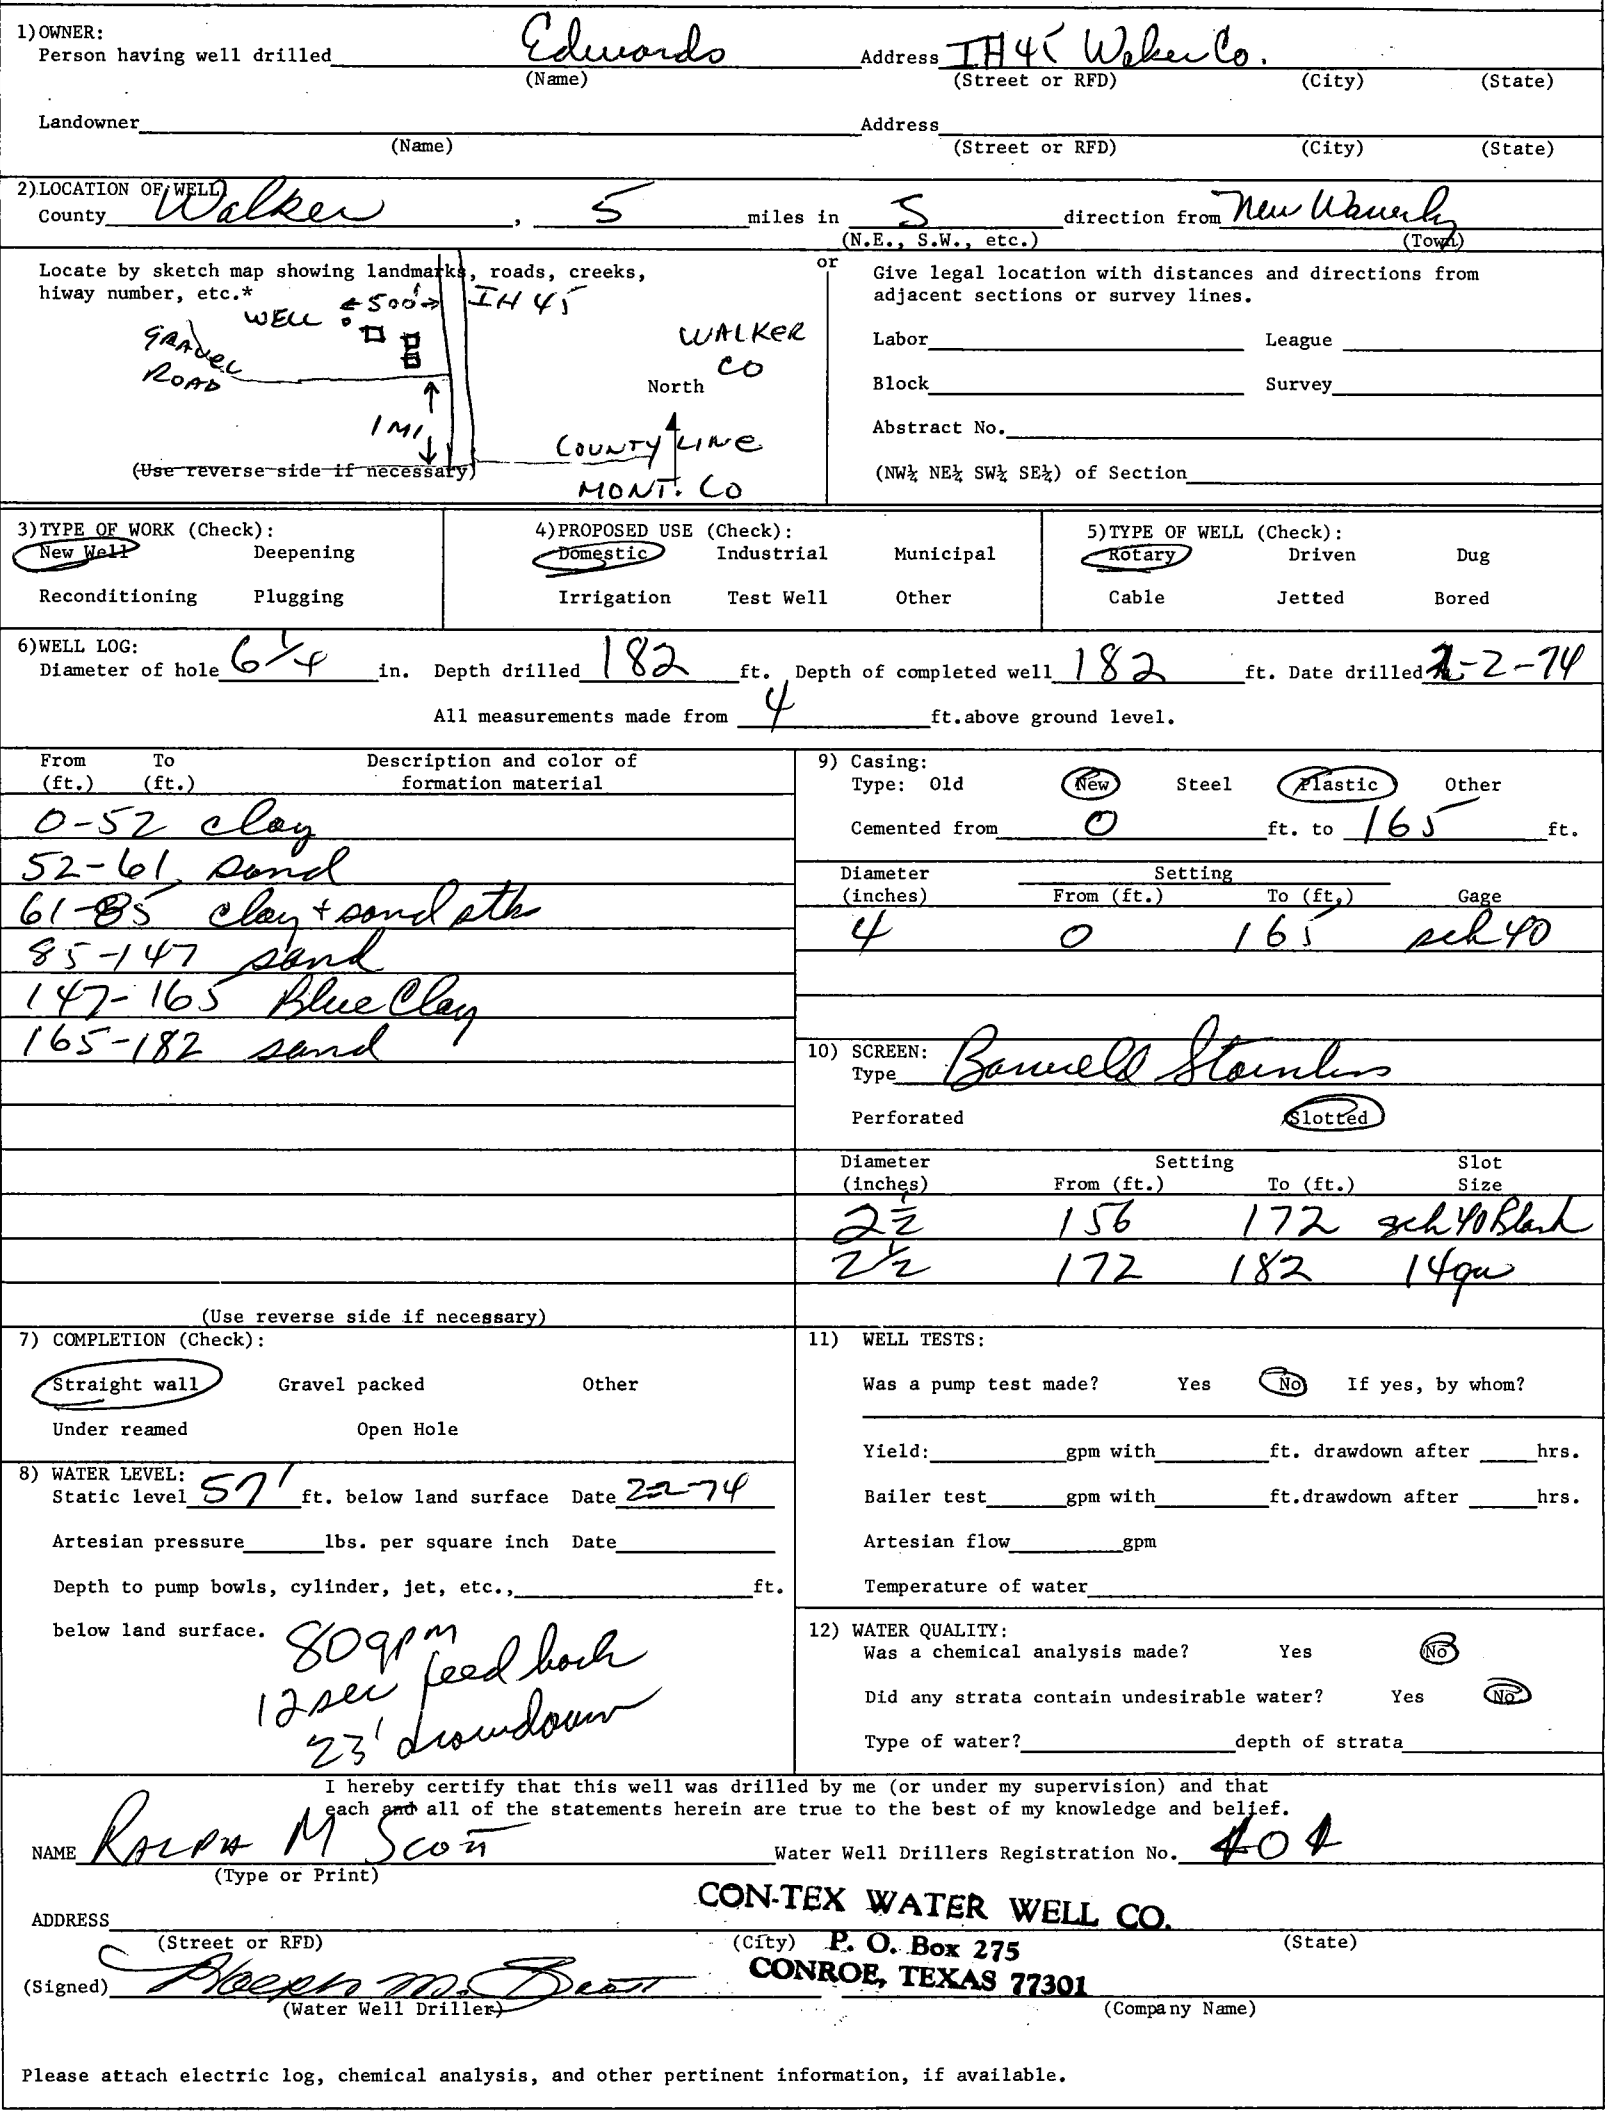 1)OWNER:
Person having well drilled Edwards Address IH 45 Walker Co.
(Name) (Street or RFD) (City) (State)
Landowner Address
(Name) (Street or RFD) (City) (State)
2)LOCATION OF WELL
County Walker , 5 miles in S direction from New Waverly
(N.E., S.W., etc.) (Town)
Locate by sketch map showing landmarks, roads, creeks,
hiway number, etc.*
WELL 500' IH 45
GRAVEL
ROAD
WALKER
CO
North
1 MI
COUNTY LINE
(Use reverse side if necessary)
MONT. CO
or
Give legal location with distances and directions from
adjacent sections or survey lines.
Labor League
Block Survey
Abstract No.
(NW¼ NE¼ SW¼ SE¼) of Section
3)TYPE OF WORK (Check):
New Well Deepening
Reconditioning Plugging
4)PROPOSED USE (Check):
Domestic Industrial Municipal
Irrigation Test Well Other
5)TYPE OF WELL (Check):
Rotary Driven Dug
Cable Jetted Bored
6)WELL LOG:
Diameter of hole 6 1/4 in. Depth drilled 182 ft. Depth of completed well 182 ft. Date drilled 2-2-74
All measurements made from 4 ft.above ground level.
From To Description and color of
(ft.) (ft.) formation material
0-52 clay
52-61 sand
61-85 clay + sand stks
85-147 sand
147-165 Blue Clay
165-182 sand
(Use reverse side if necessary)
9) Casing:
Type: Old New Steel Plastic Other
Cemented from 0 ft. to 165 ft.
Diameter Setting
(inches) From (ft.) To (ft.) Gage
4 0 165 sch 40
10) SCREEN:
Type Barweld Stainless
Perforated Slotted
Diameter Setting Slot
(inches) From (ft.) To (ft.) Size
2 1/2 156 172 sch 40 Blank
2 1/2 172 182 14ga
7) COMPLETION (Check):
Straight wall Gravel packed Other
Under reamed Open Hole
8) WATER LEVEL:
Static level 57' ft. below land surface Date 2-2-74
Artesian pressure lbs. per square inch Date
Depth to pump bowls, cylinder, jet, etc., ft.
below land surface.
80 gpm
12 sec feed back
23' drawdown
11) WELL TESTS:
Was a pump test made? Yes No If yes, by whom?
Yield: gpm with ft. drawdown after hrs.
Bailer test gpm with ft.drawdown after hrs.
Artesian flow gpm
Temperature of water
12) WATER QUALITY:
Was a chemical analysis made? Yes No
Did any strata contain undesirable water? Yes No
Type of water? depth of strata
I hereby certify that this well was drilled by me (or under my supervision) and that
each and all of the statements herein are true to the best of my knowledge and belief.
NAME RALPH M SCOTT Water Well Drillers Registration No. 401
(Type or Print)
CON-TEX WATER WELL CO.
ADDRESS
(Street or RFD) (City) P. O. Box 275 (State)
CONROE, TEXAS 77301
(Signed) Ralph M. Scott
(Water Well Driller) (Company Name)
Please attach electric log, chemical analysis, and other pertinent information, if available.